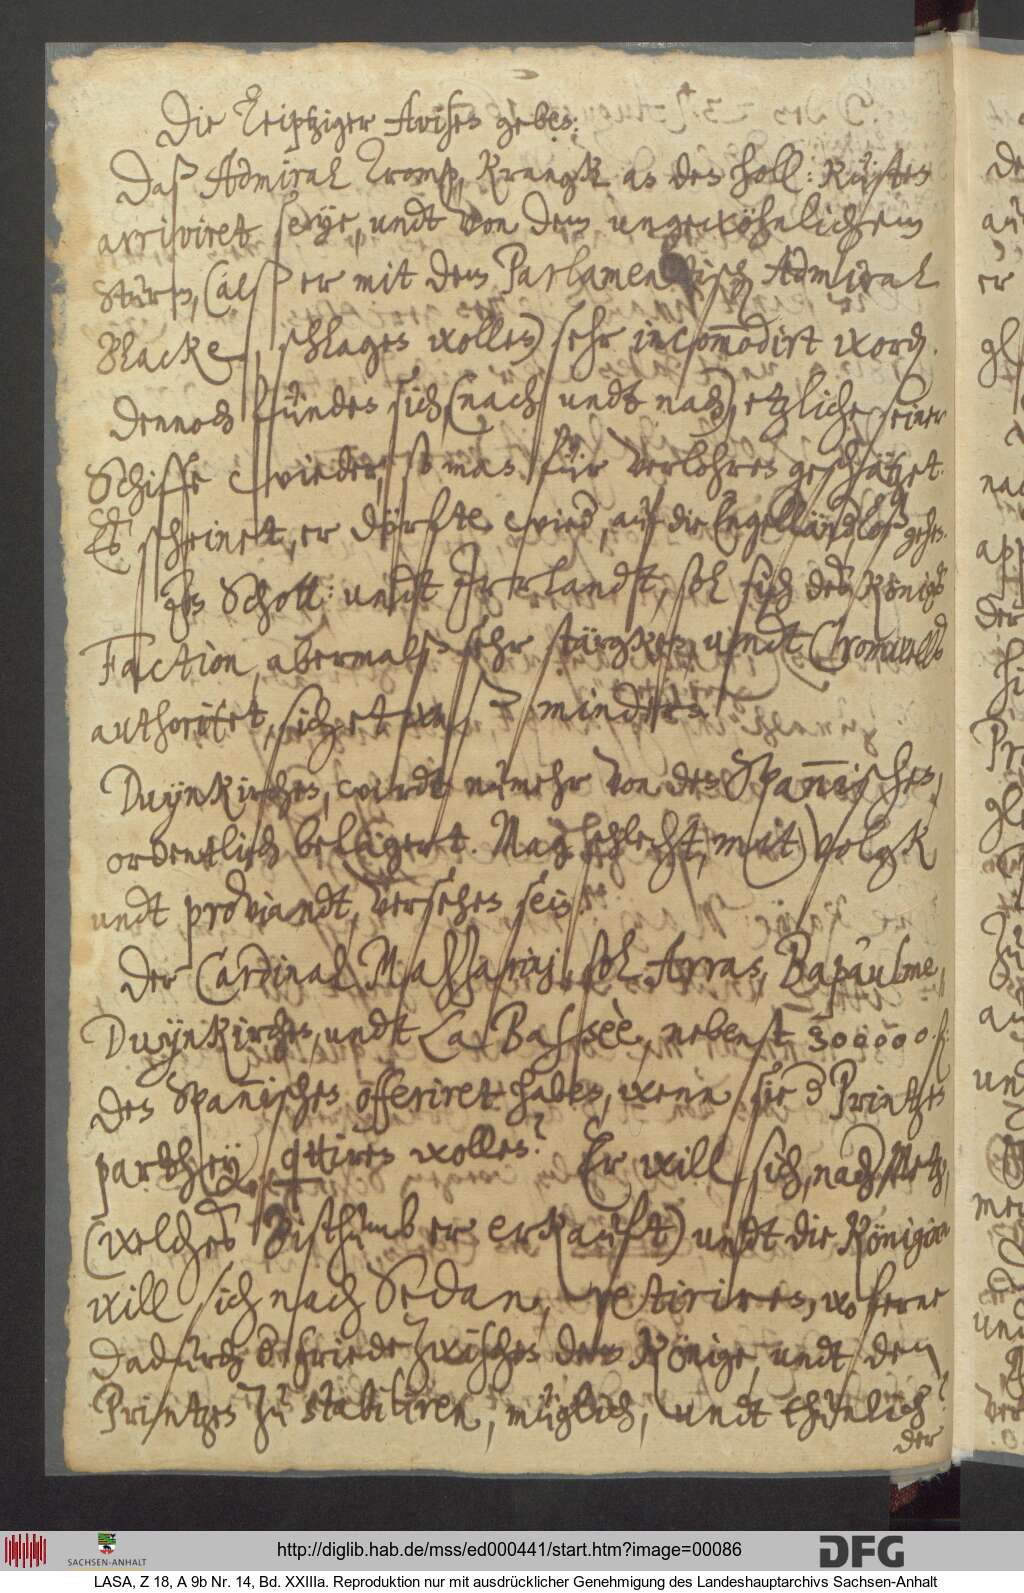 Die Leiptziger Avisen geben:
Daß Admiral Tromp, Krangk an den holl: Küsten
arriviret seye, undt von dem ungewöhnlichem
Sturm, (alß er mit dem Parlamentisch Admiral
Blacke, schlagen wollen) sehr incom̄odirt word.
Dennoch fünden sich, (nach undt nach) etzliche seiner
Schiffe wieder, so man für verlohren geschätzet.
Es scheinet, er dörfte wied, auf die Engelländ loß gehen.
In Schott: undt Irrlandt, sol sich des Königs
Faction, abermalß sehr stärgken, undt Cromwells
authoritet, sich etwaß mindern.
Duynkirchen, wirdt numehr von den Span̄ischen,
ordentlich belägert. Mag schlecht, mit Volgk
undt proviandt, versehen sein.
Der Cardinal Massarinj, sol Arras, Bapaulme,
Duynkirchen, undt La Bassèe, nebenst 300000 f.
den Span̄ischen offeriret haben, wenn sie d Printzen
parthey, qttiren wollen? Er will sich, nach Metz,
(welches Bisthumb er erkauft) undt die Königinn
will sich nach Sedan, retiriren, woferne
dadurch d friede zwischen dem Könige, undt dem
Printzen zu stabiliren, müglich, undt thunlich?
der
http://diglib.hab.de/mss/ed000441/start.htm?image=00086
SACHSEN-ANHALT
DFG
LASA, Z 18, A 9b Nr. 14, Bd. XXIIIa. Reproduktion nur mit ausdrücklicher Genehmigung des Landeshauptarchivs Sachsen-Anhalt